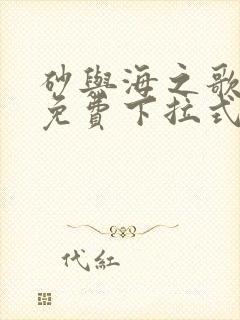 砂與海之歌
免費下拉式
代紅